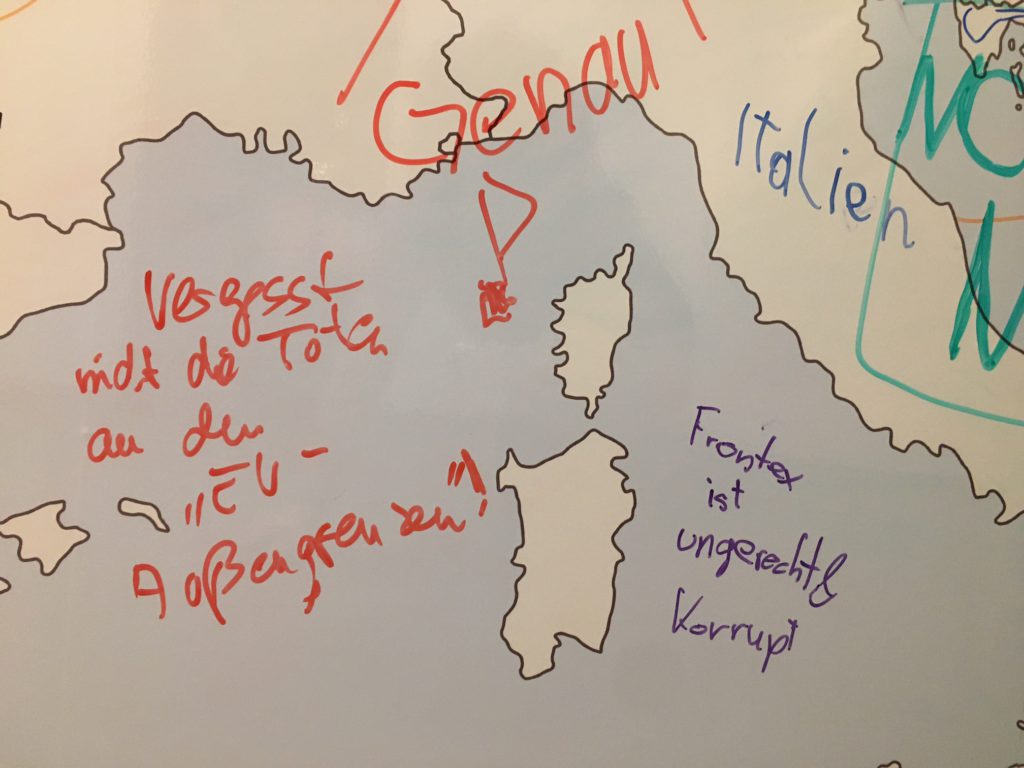 Genau
Italien
NO
N
Vergesst
nicht die Toten
an den
„EU-
Außengrenzen"!
Frontex
ist
ungerecht &
Korrupt